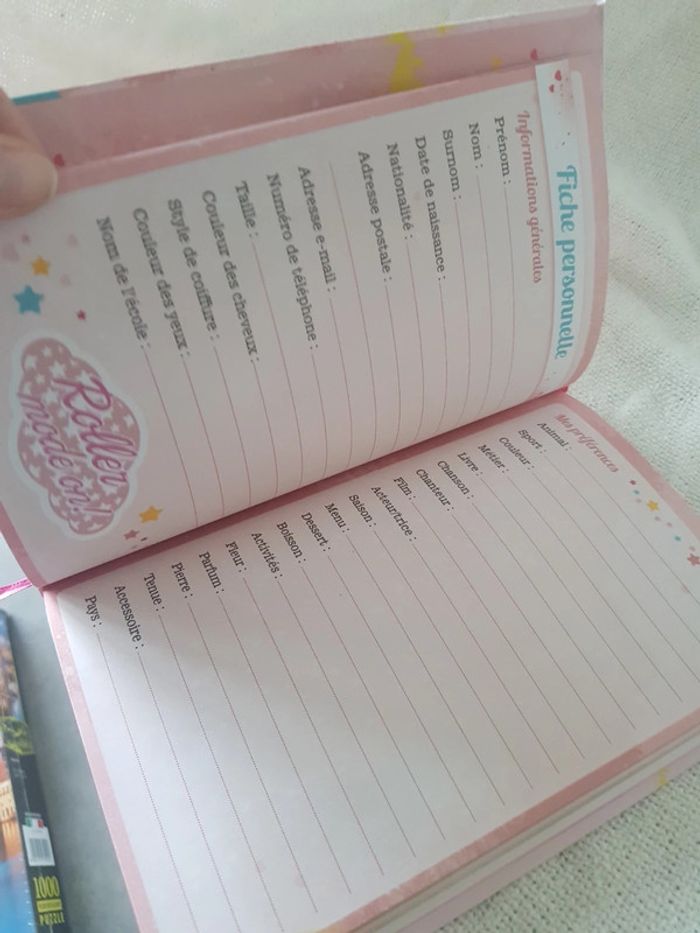 Fiche personnelle
Informations générales
Prénom :
Nom :
Surnom :
Date de naissance :
Nationalité :
Adresse postale :
Adresse e-mail :
Numéro de téléphone :
Taille :
Couleur des cheveux :
Style de coiffure :
Couleur des yeux :
Nom de l'école :
Roller
mode on!
Mes préférences
Animal :
Sport :
Couleur :
Métier :
Livre :
Chanson :
Chanteur :
Film :
Acteur/trice :
Saison :
Menu :
Dessert :
Boisson :
Activités :
Fleur :
Parfum :
Pierre :
Tenue :
Accessoire :
Pays :
1000
PUZZLE